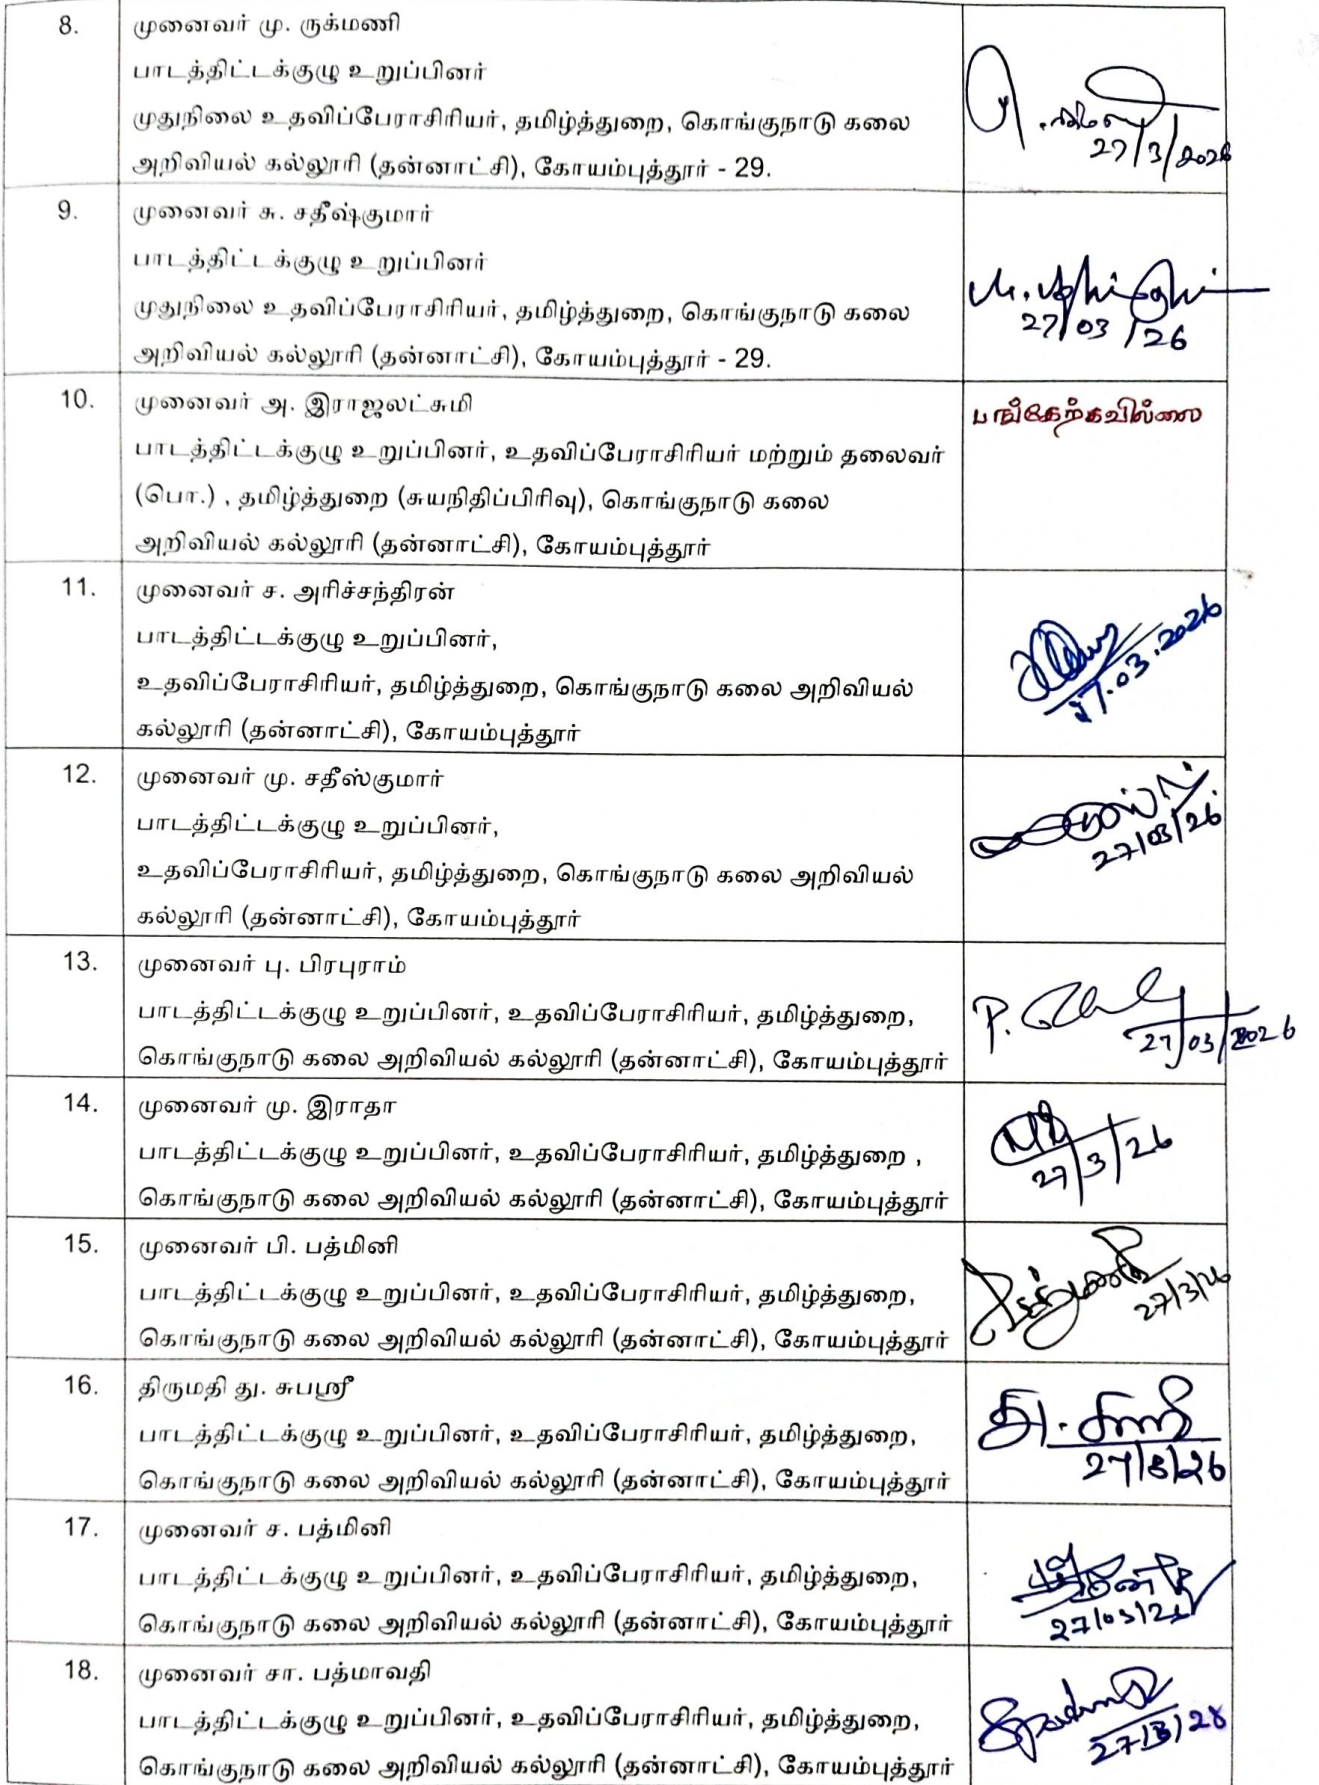 8.
முனைவர் மு. ருக்மணி
பாடத்திட்டக்குழு உறுப்பினர்
முதுநிலை உதவிப்பேராசிரியர், தமிழ்த்துறை, கொங்குநாடு கலை
அறிவியல் கல்லூரி (தன்னாட்சி), கோயம்புத்தூர் - 29.
27/3/2026
9.
முனைவர் சு. சதீஷ்குமார்
பாடத்திட்டக்குழு உறுப்பினர்
முதுநிலை உதவிப்பேராசிரியர், தமிழ்த்துறை, கொங்குநாடு கலை
அறிவியல் கல்லூரி (தன்னாட்சி), கோயம்புத்தூர் - 29.
27/03/26
10.
முனைவர் அ. இராஜலட்சுமி
பாடத்திட்டக்குழு உறுப்பினர், உதவிப்பேராசிரியர் மற்றும் தலைவர்
(பொ.) , தமிழ்த்துறை (சுயநிதிப்பிரிவு), கொங்குநாடு கலை
அறிவியல் கல்லூரி (தன்னாட்சி), கோயம்புத்தூர்
பங்கேற்கவில்லை
11.
முனைவர் ச. அரிச்சந்திரன்
பாடத்திட்டக்குழு உறுப்பினர்,
உதவிப்பேராசிரியர், தமிழ்த்துறை, கொங்குநாடு கலை அறிவியல்
கல்லூரி (தன்னாட்சி), கோயம்புத்தூர்
27.03.2026
12.
முனைவர் மு. சதீஸ்குமார்
பாடத்திட்டக்குழு உறுப்பினர்,
உதவிப்பேராசிரியர், தமிழ்த்துறை, கொங்குநாடு கலை அறிவியல்
கல்லூரி (தன்னாட்சி), கோயம்புத்தூர்
27/03/26
13.
முனைவர் பு. பிரபுராம்
பாடத்திட்டக்குழு உறுப்பினர், உதவிப்பேராசிரியர், தமிழ்த்துறை,
கொங்குநாடு கலை அறிவியல் கல்லூரி (தன்னாட்சி), கோயம்புத்தூர்
27/03/2026
14.
முனைவர் மு. இராதா
பாடத்திட்டக்குழு உறுப்பினர், உதவிப்பேராசிரியர், தமிழ்த்துறை ,
கொங்குநாடு கலை அறிவியல் கல்லூரி (தன்னாட்சி), கோயம்புத்தூர்
27/3/26
15.
முனைவர் பி. பத்மினி
பாடத்திட்டக்குழு உறுப்பினர், உதவிப்பேராசிரியர், தமிழ்த்துறை,
கொங்குநாடு கலை அறிவியல் கல்லூரி (தன்னாட்சி), கோயம்புத்தூர்
27/3/26
16.
திருமதி து. சுபஸ்ரீ
பாடத்திட்டக்குழு உறுப்பினர், உதவிப்பேராசிரியர், தமிழ்த்துறை,
கொங்குநாடு கலை அறிவியல் கல்லூரி (தன்னாட்சி), கோயம்புத்தூர்
27/3/26
17.
முனைவர் ச. பத்மினி
பாடத்திட்டக்குழு உறுப்பினர், உதவிப்பேராசிரியர், தமிழ்த்துறை,
கொங்குநாடு கலை அறிவியல் கல்லூரி (தன்னாட்சி), கோயம்புத்தூர்
18.
முனைவர் சா. பத்மாவதி
பாடத்திட்டக்குழு உறுப்பினர், உதவிப்பேராசிரியர், தமிழ்த்துறை,
கொங்குநாடு கலை அறிவியல் கல்லூரி (தன்னாட்சி), கோயம்புத்தூர்